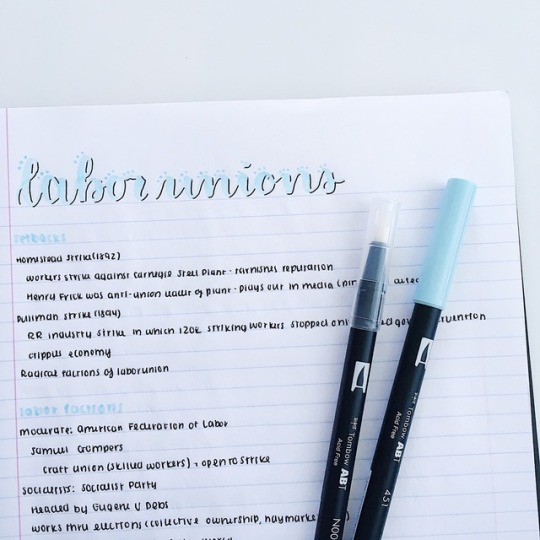 labor unions
setbacks
Homestead strike (1892)
workers strike against Carnegie Steel Plant - tarnishes reputation
Henry Frick was anti-union leader of plant - plays out in media
Pullman strike (1894)
RR industry strike in which 120k striking workers stopped
cripples economy
Radical factions of labor union
labor factions
moderate: American Federation of Labor
Samuel Gompers
craft union (skilled workers), open to strike
socialists: Socialist Party
headed by Eugene V Debs
works thru elections (collective ownership, haymarket
Tombow ABT
Acid Free
N00
Tombow ABT
Acid Free
451